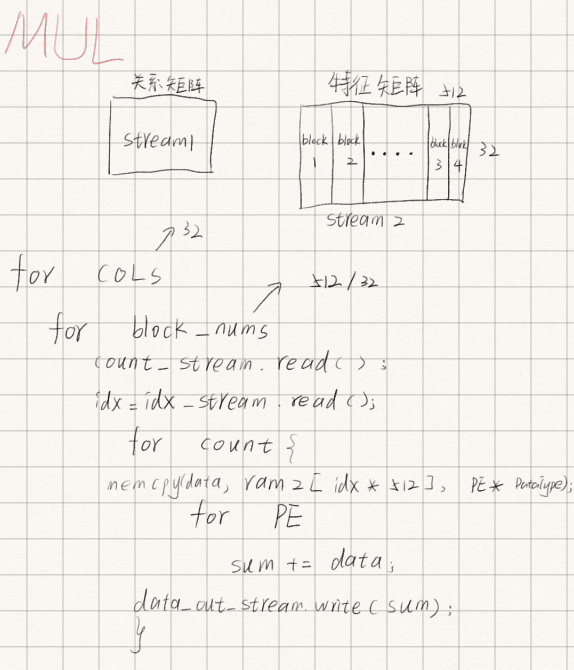 MUL
关系矩阵
特征矩阵 512
stream1
block 1
block 2
....
block 3
block 4
32
stream 2
32
for COLs
512/32
for block_nums
count_stream.read();
idx=idx_stream.read();
for count {
memcpy(data, ram2[idx*512], PE*DataType);
for PE
sum += data;
data_out_stream.write(sum);
}